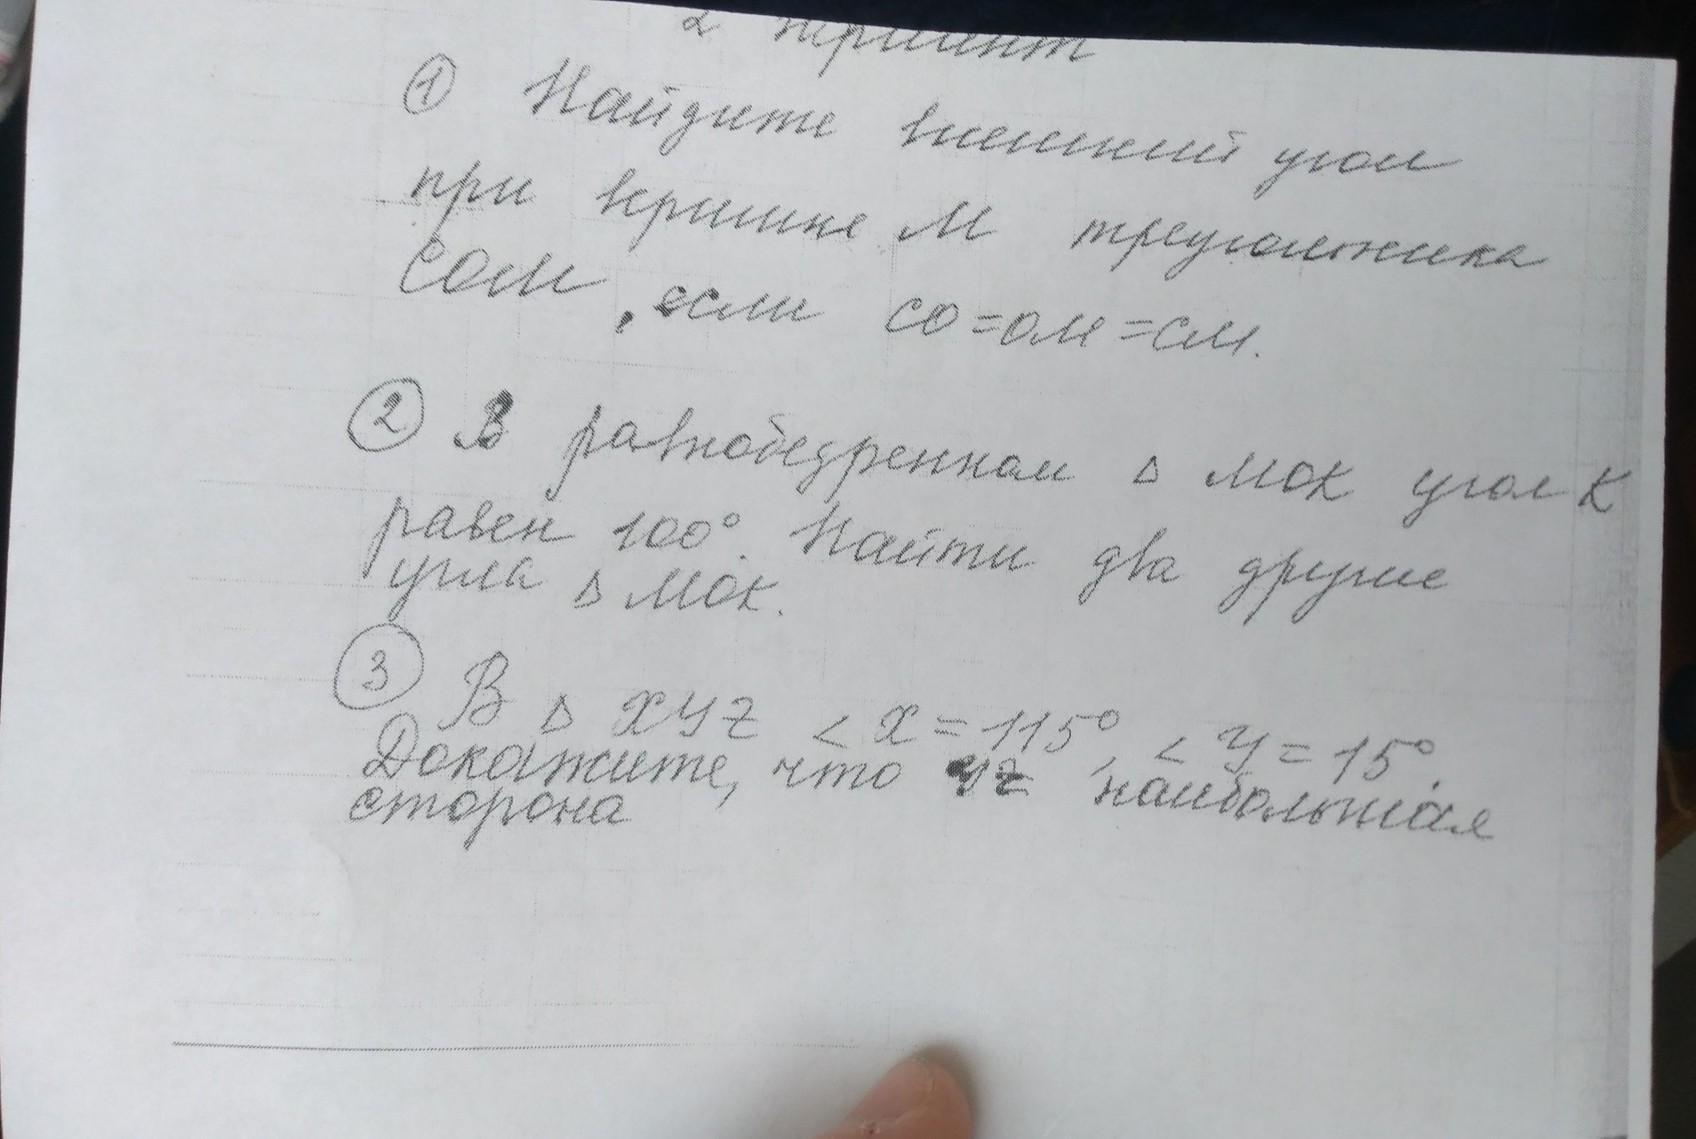 2 вариант
① Найдите внешний угол
при вершине М треугольника
СОМ, если СО=ОМ=СМ.
② В равнобедренном Δ МОК угол К
равен 100°. Найти два другие
угла Δ МОК.
③ В Δ XYZ <X=115°, <Y=15°.
Докажите, что YZ наибольшая
сторона